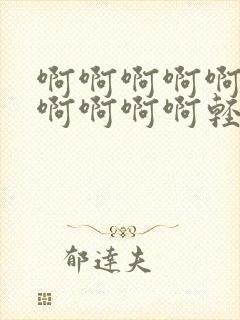 啊啊啊啊啊
啊啊啊啊轻
郁達夫